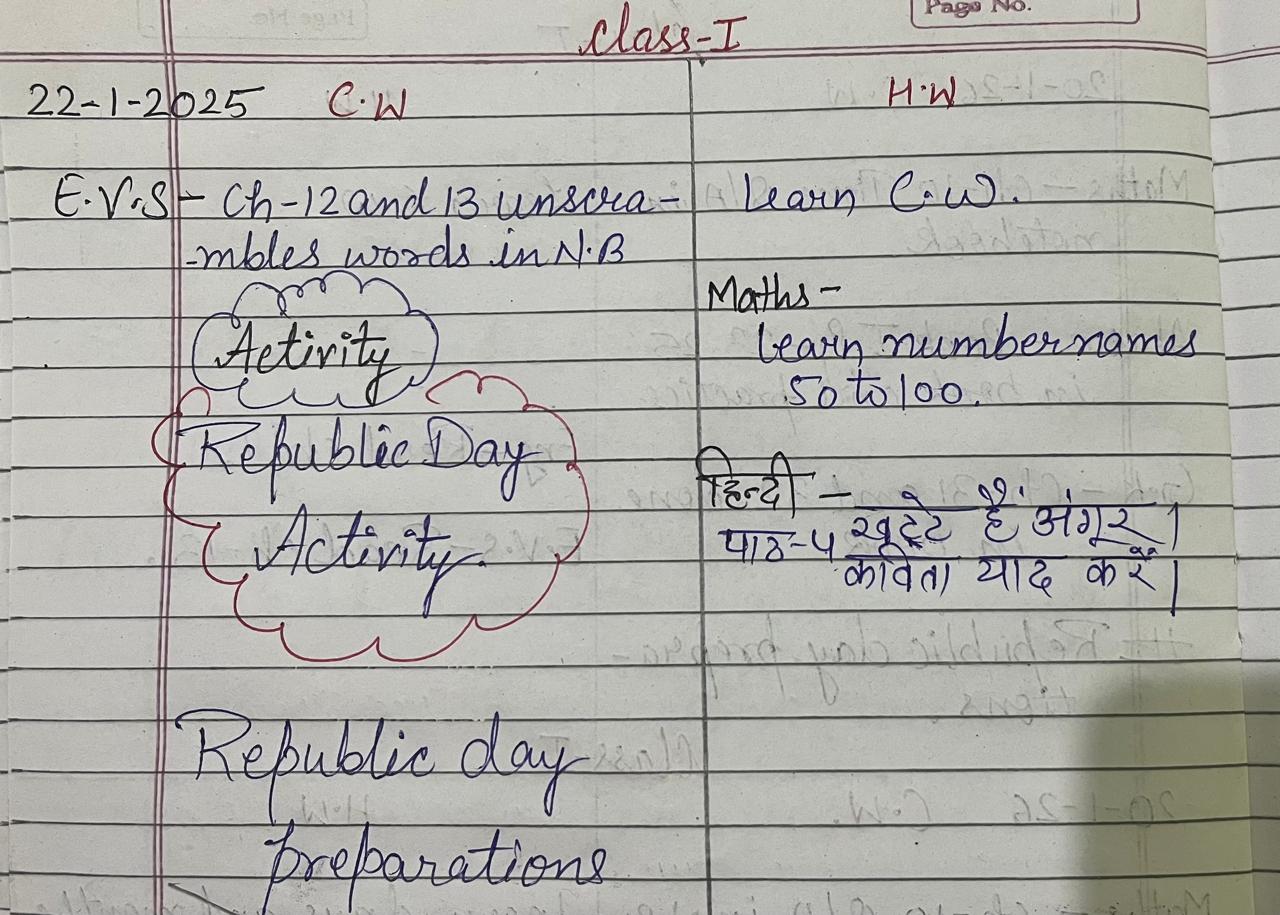 Page No.
Class-I
22-1-2025 C.W
E.V.S - Ch-12 and 13 unscra-
-mbles words in N.B
Activity
Republic Day
Activity.
Republic day
preparations
H.W
Learn C.W.
Maths-
Learn number names
50 to 100.
हिन्दी -
पाठ-५ खट्टे हैं अंगूर।
कविता याद करें।